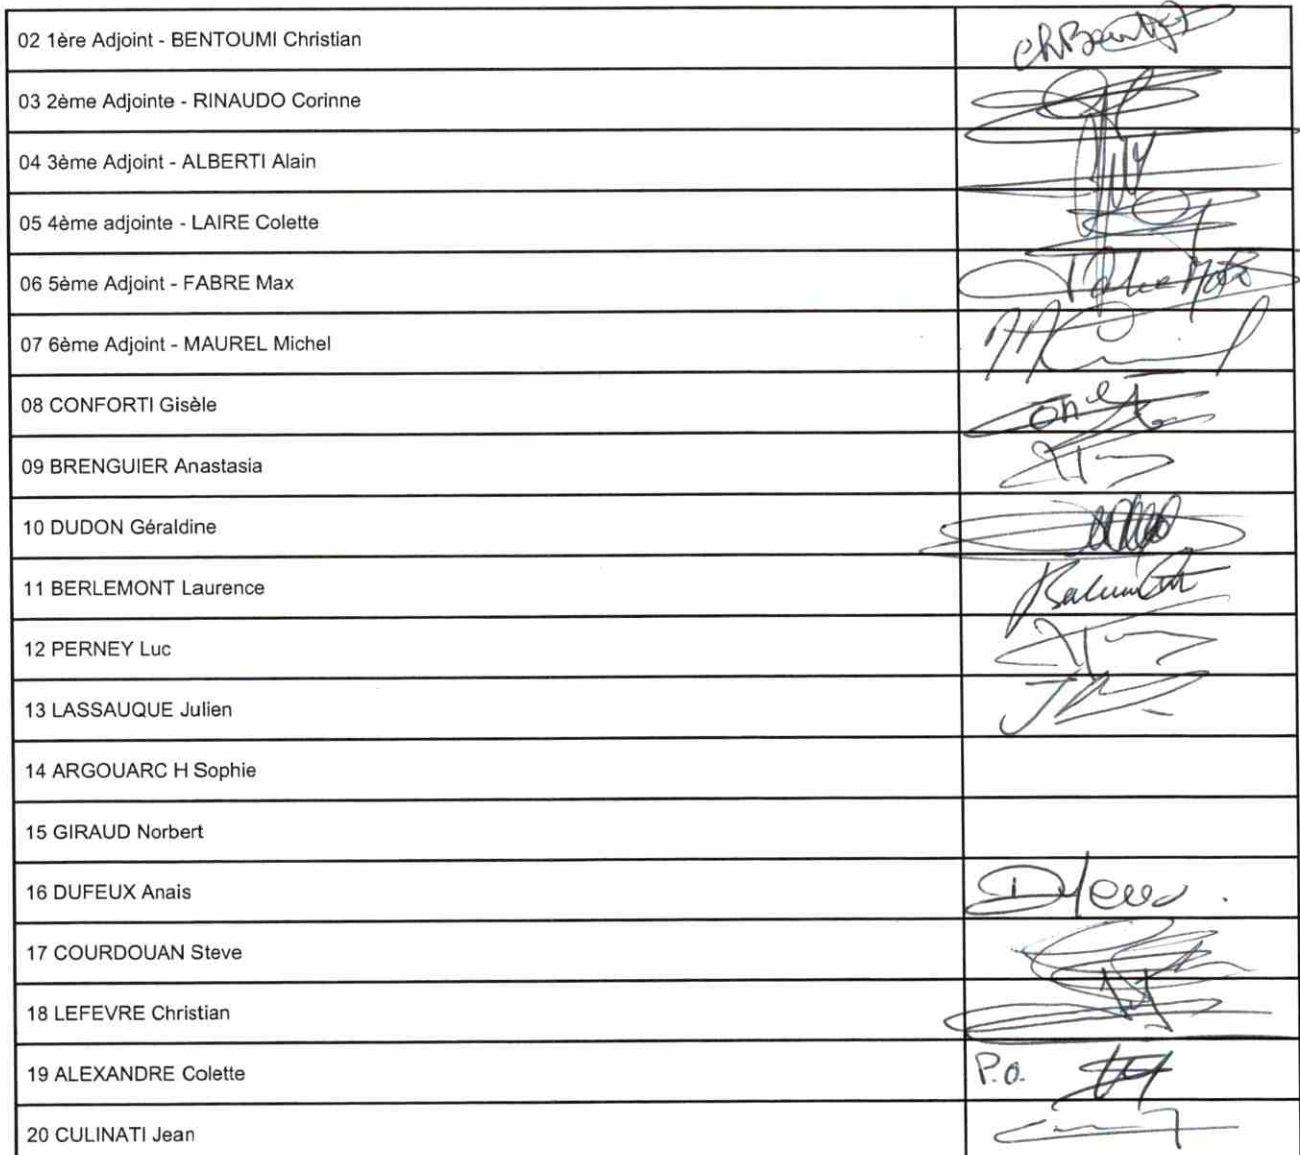 02 1ère Adjoint - BENTOUMI Christian
03 2ème Adjointe - RINAUDO Corinne
04 3ème Adjoint - ALBERTI Alain
05 4ème adjointe - LAIRE Colette
06 5ème Adjoint - FABRE Max
07 6ème Adjoint - MAUREL Michel
08 CONFORTI Gisèle
09 BRENGUIER Anastasia
10 DUDON Géraldine
11 BERLEMONT Laurence
12 PERNEY Luc
13 LASSAUQUE Julien
14 ARGOUARC H Sophie
15 GIRAUD Norbert
16 DUFEUX Anais
17 COURDOUAN Steve
18 LEFEVRE Christian
19 ALEXANDRE Colette P.O.
20 CULINATI Jean